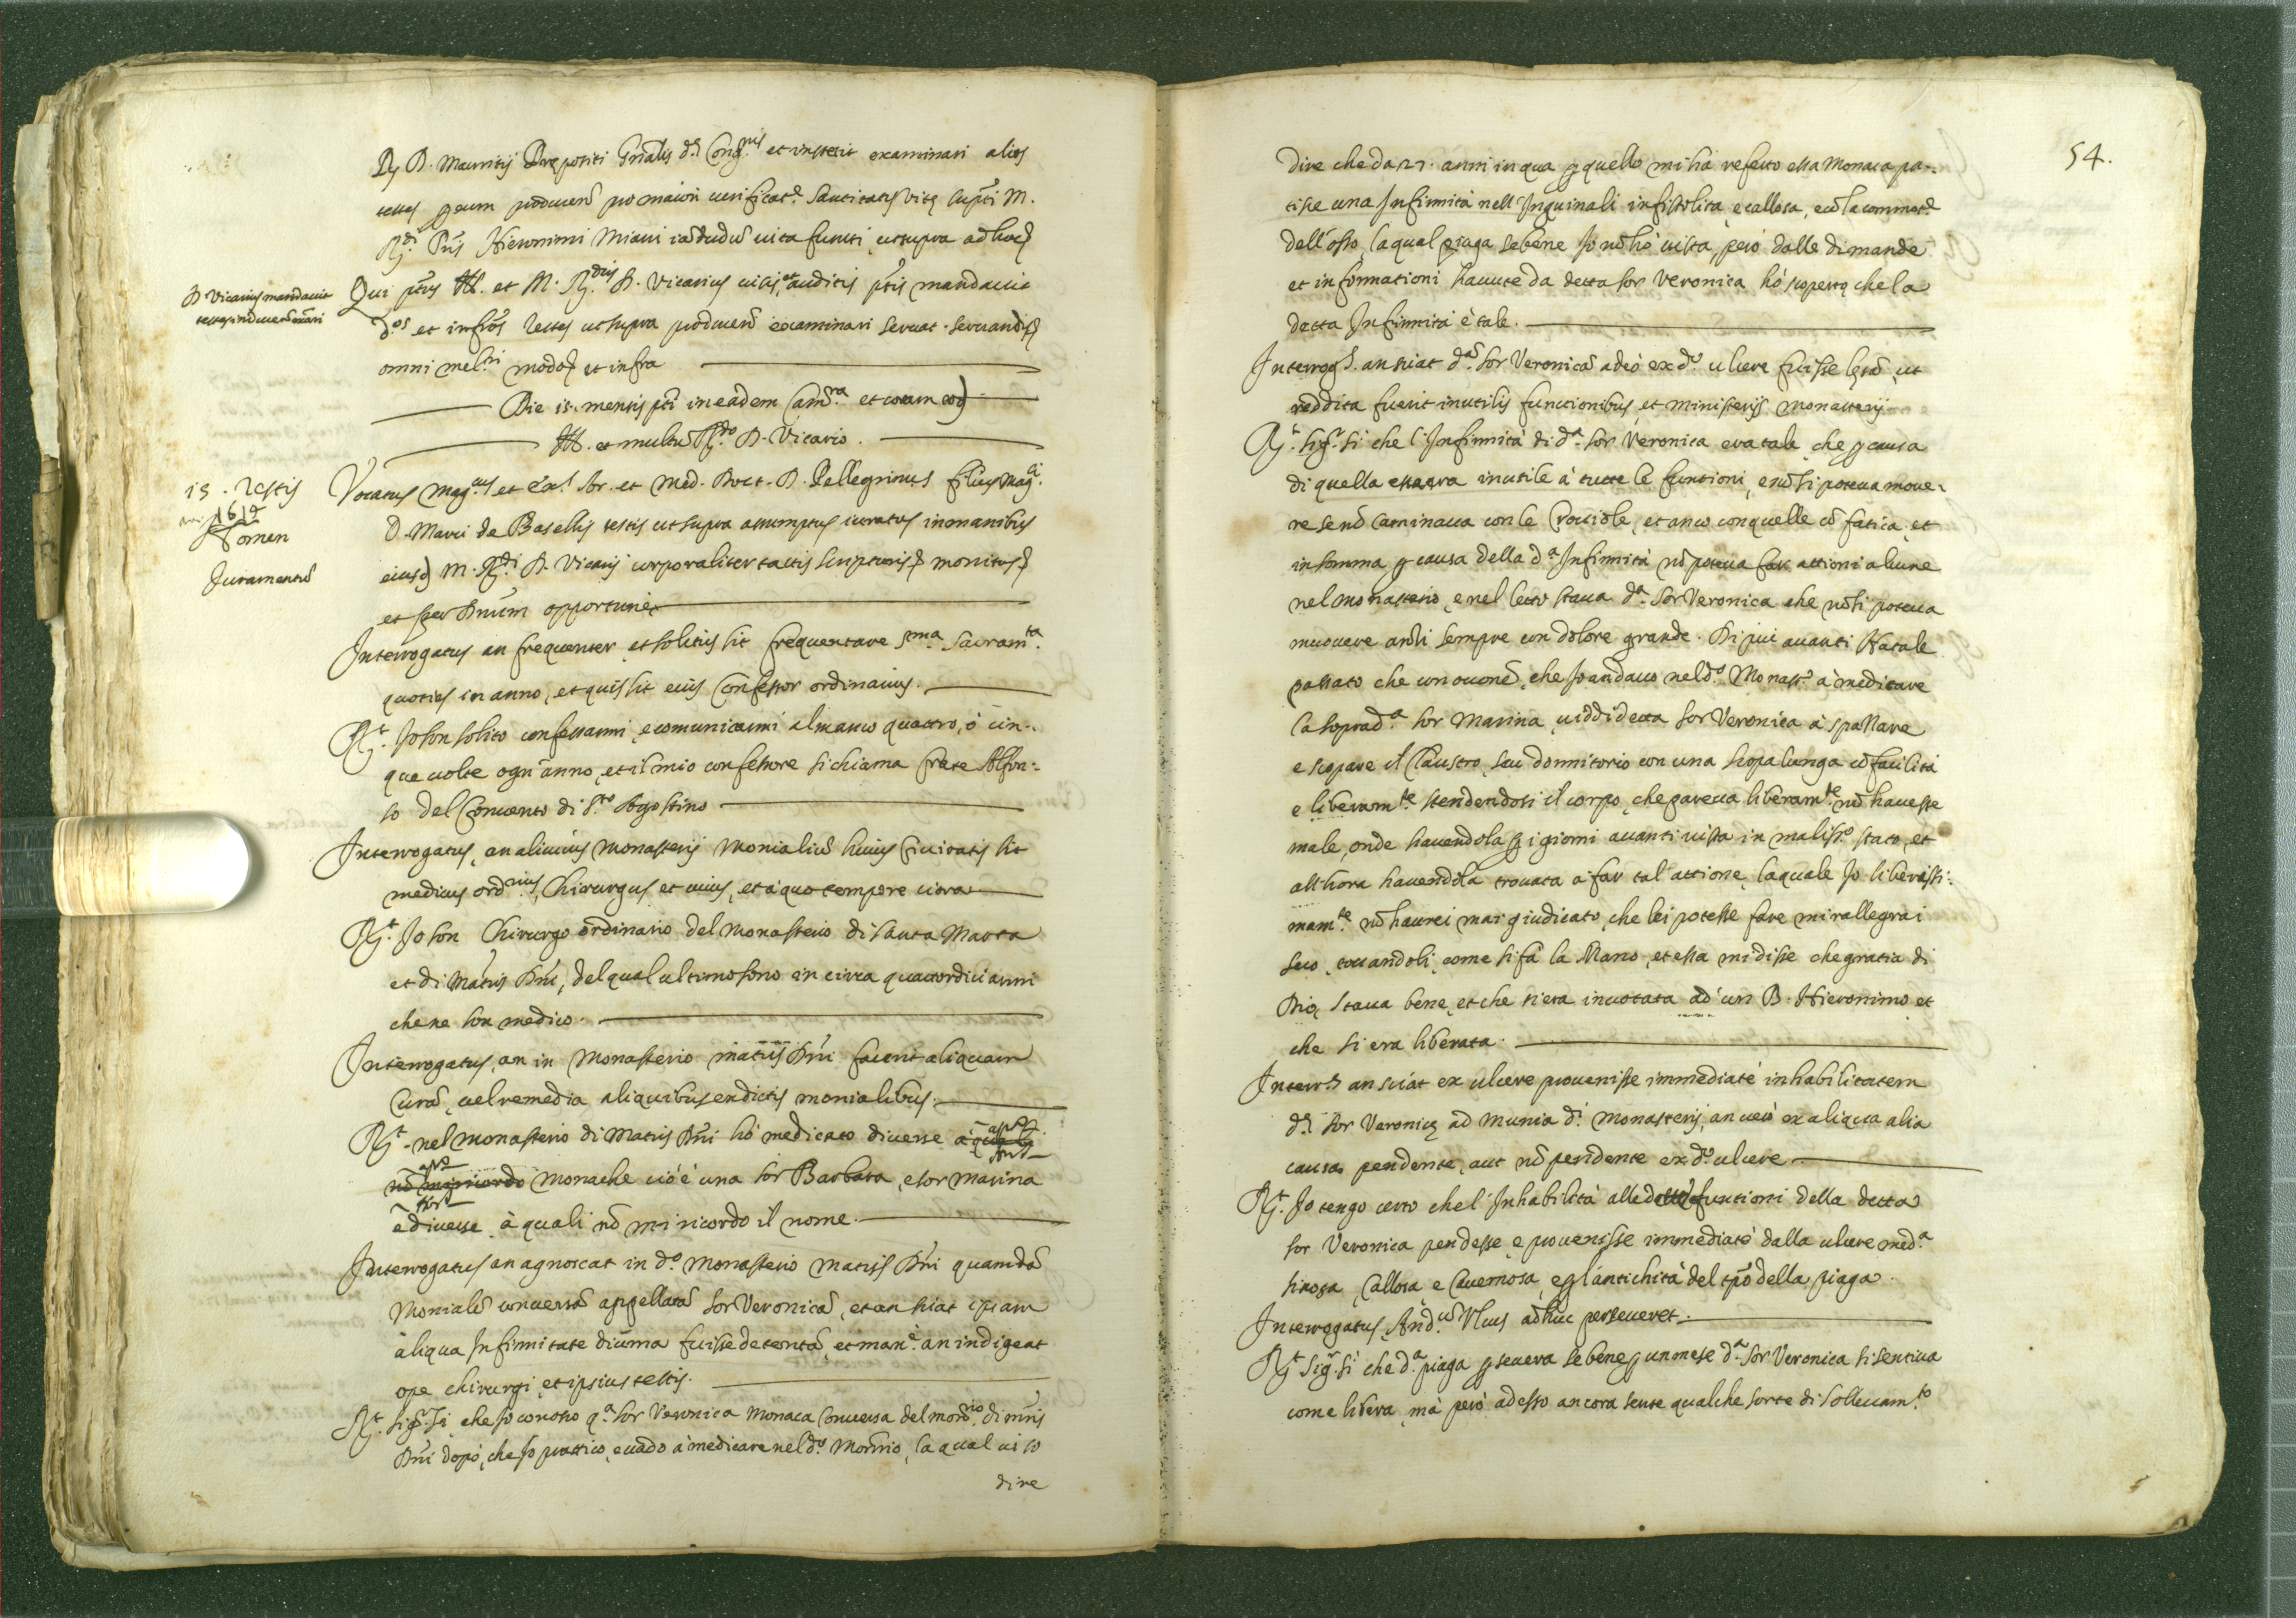 R. D. Mauritij Prepositi Gñalis d. Cong.nis et instetit examinari alios
testes per eum producen̄ pro maiori verificat.e Santitatis vitę supti M.
R.di Pris Hieronimi Miani iādudū vita functi, ut supra ad hoc
D Vicarius mandavit
testes inducen̄ exāri
Qui ptus Ill. et M. R.dus D. Vicarius visis, et auditis ptis mandavit
d.os et infros testes ut supra producen̄ examinari servat. servandis
omni mel.ri modo et infra
Die is. mensis pti in eadem Cam.ra et coram eod
Ill. et multū R.do D. Vicario.
is. Testis
1612
Nomen
Juramentū
Vocatus Mag.cus et Ex.s Sr. et Med. Doct. D. Pellegrinus filius Mag.ci
D. Marci de Basellis testis ut supra assumptus iuratus in manibus
eiusd M. R.di D. Vicarij corporaliter tactis scripturis monitus
et super Dnūm opportunè
Interrogatus an frequenter, et solitus sit frequentare S.ma Sacram.ta
quoties in anno, et quis sit eius Confessor ordinarius.
R.t Jo son solito confessarmi, e comunicarmi almanco quattro, ò cin-
que volte ogn'anno, et il mio confessore si chiama frate Alfon-
so del Convento di S.to Agostino
Interrogatus, an alicuius Monasterij Monialiū huius Civitatis sit
medicus ord.rius, Chirurgus et cuius, et à quo tempore citra
R.t Jo son Chirurgo ordinario del Monasterio di santa Marta
et di Matris Dn̄i, del qual ultimo sono in circa quatordici anni
che ne son medico.
Interrogatus, an in Monasterio matris Dn̄i fecerit aliquam
Curā, vel remedia aliquibus ex dictis monialibus.
R.t nel monasterio di Matris Dn̄i hò medicato diverse à quali
nō mi ricordo Monache cio è una sor Barbara, e sor Marina
e diverse à quali nō mi ricordo il nome.
Interrogatus an agnoscat in d.o Monasterio Matris Dn̄i quamdā
Monialē conversā appellatā sor Veronicā, et an sciat ipsam
aliqua Infirmitate diu̅rna fuisse detentā, et man.e an indigeat
ope chirurgi, et ipsius testis.
R.t sig.r si, che Jo conosco q.a sor Veronica Monaca Conversa del mon.rio di mr̄is
Dn̄i dopò, che Jo prattico, e vado à medicare nel d.o Mon̄rio, la qual vi so
dire
54.
dire che da 27. anni in qua per quello mi hà referto essa Monaca pa-
tisse una Infirmità nell'Inguinali infistolita, e callosa, e cō la commot.e
dell'osso, la qual piaga sebene Jo nō hò vista, però dalle dimande
et informationi havute da detta sor Veronica hò scoperto che la
detta Infirmità è tale.
Interrog.s an sciat d.ā sor Veronicā adeò ex d.o ulcere fuisse lęsā, ut
reddita fuerit inutilis functionibus, et ministerijs Monasterij
R.t sig.r si che l'Infirmità di d.a sor Veronica era tale che per causa
di quella era inutile à tutte le funtioni, e nō si poteva move-
re se nō Caminava con le Crociole, et anco con quelle cō fatica, et
in somma per causa della d.a Infirmità nō poteva far attioni alcune
nel monasterio, e nel letto stava d.a Sor Veronica che nō si poteva
muovere anzi sempre con dolore grande. Di piu avanti Natale
passato che con occoñe, che Jo andavo nel d.o Monast.o à medicare
la soprad.a sor Marina, viddi detta sor Veronica à spassare
e scopare il Claustro, seu dormitorio con una scopa lunga cō facilità
e liberam.te stendendosi il corpo, che pareva liberam.te nō havesse
male, onde havendola per i giorni avanti vista in malis.o stato, et
all'hora havendola trovata à far tal attione, la quale Jo liberissi-
mam.te nō haurei mai giudicato, che lei potesse fare mi rallegrai
seco, toccandoli, come si fà la Mano, et essa mi disse che gratia di
Dio stava bene, et che s'era invotata ad un B. Hieronimo et
che si era liberata.
Interr.s an sciat ex ulcere provenisse immediatè inhabilitatem
d.ę sor Veronicę ad munia d.i Monasterij, an verò ex aliqua alia
causa pendente, aut nō pendente ex d.o ulcere
R.t Jo tengo certo che l'Inhabilità alle dette funtioni della detta
sor Veronica pendesse, e provenisse immediatè dalla ulcere med.a
sinosa, Callosa, e Cavernosa, e per l'antichità del tpō della piaga.
Interrogatus, An d.ū Ulcus adhuc perseveret.
R.t Sig.r si che d.a piaga persevera se bene per un mese d.a Sor Veronica si sentiva
come libera, mà però adesso ancora sente qualche sorte di sollevam.to